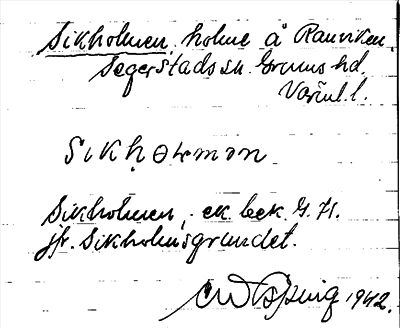 Sikholmen, holme å Ranviken
Segerstads sn. Grums hd.
Värml. l.
Sikholmen, ek. bek. G. 71.
jfr. Sikholmsgrundet.
1942.